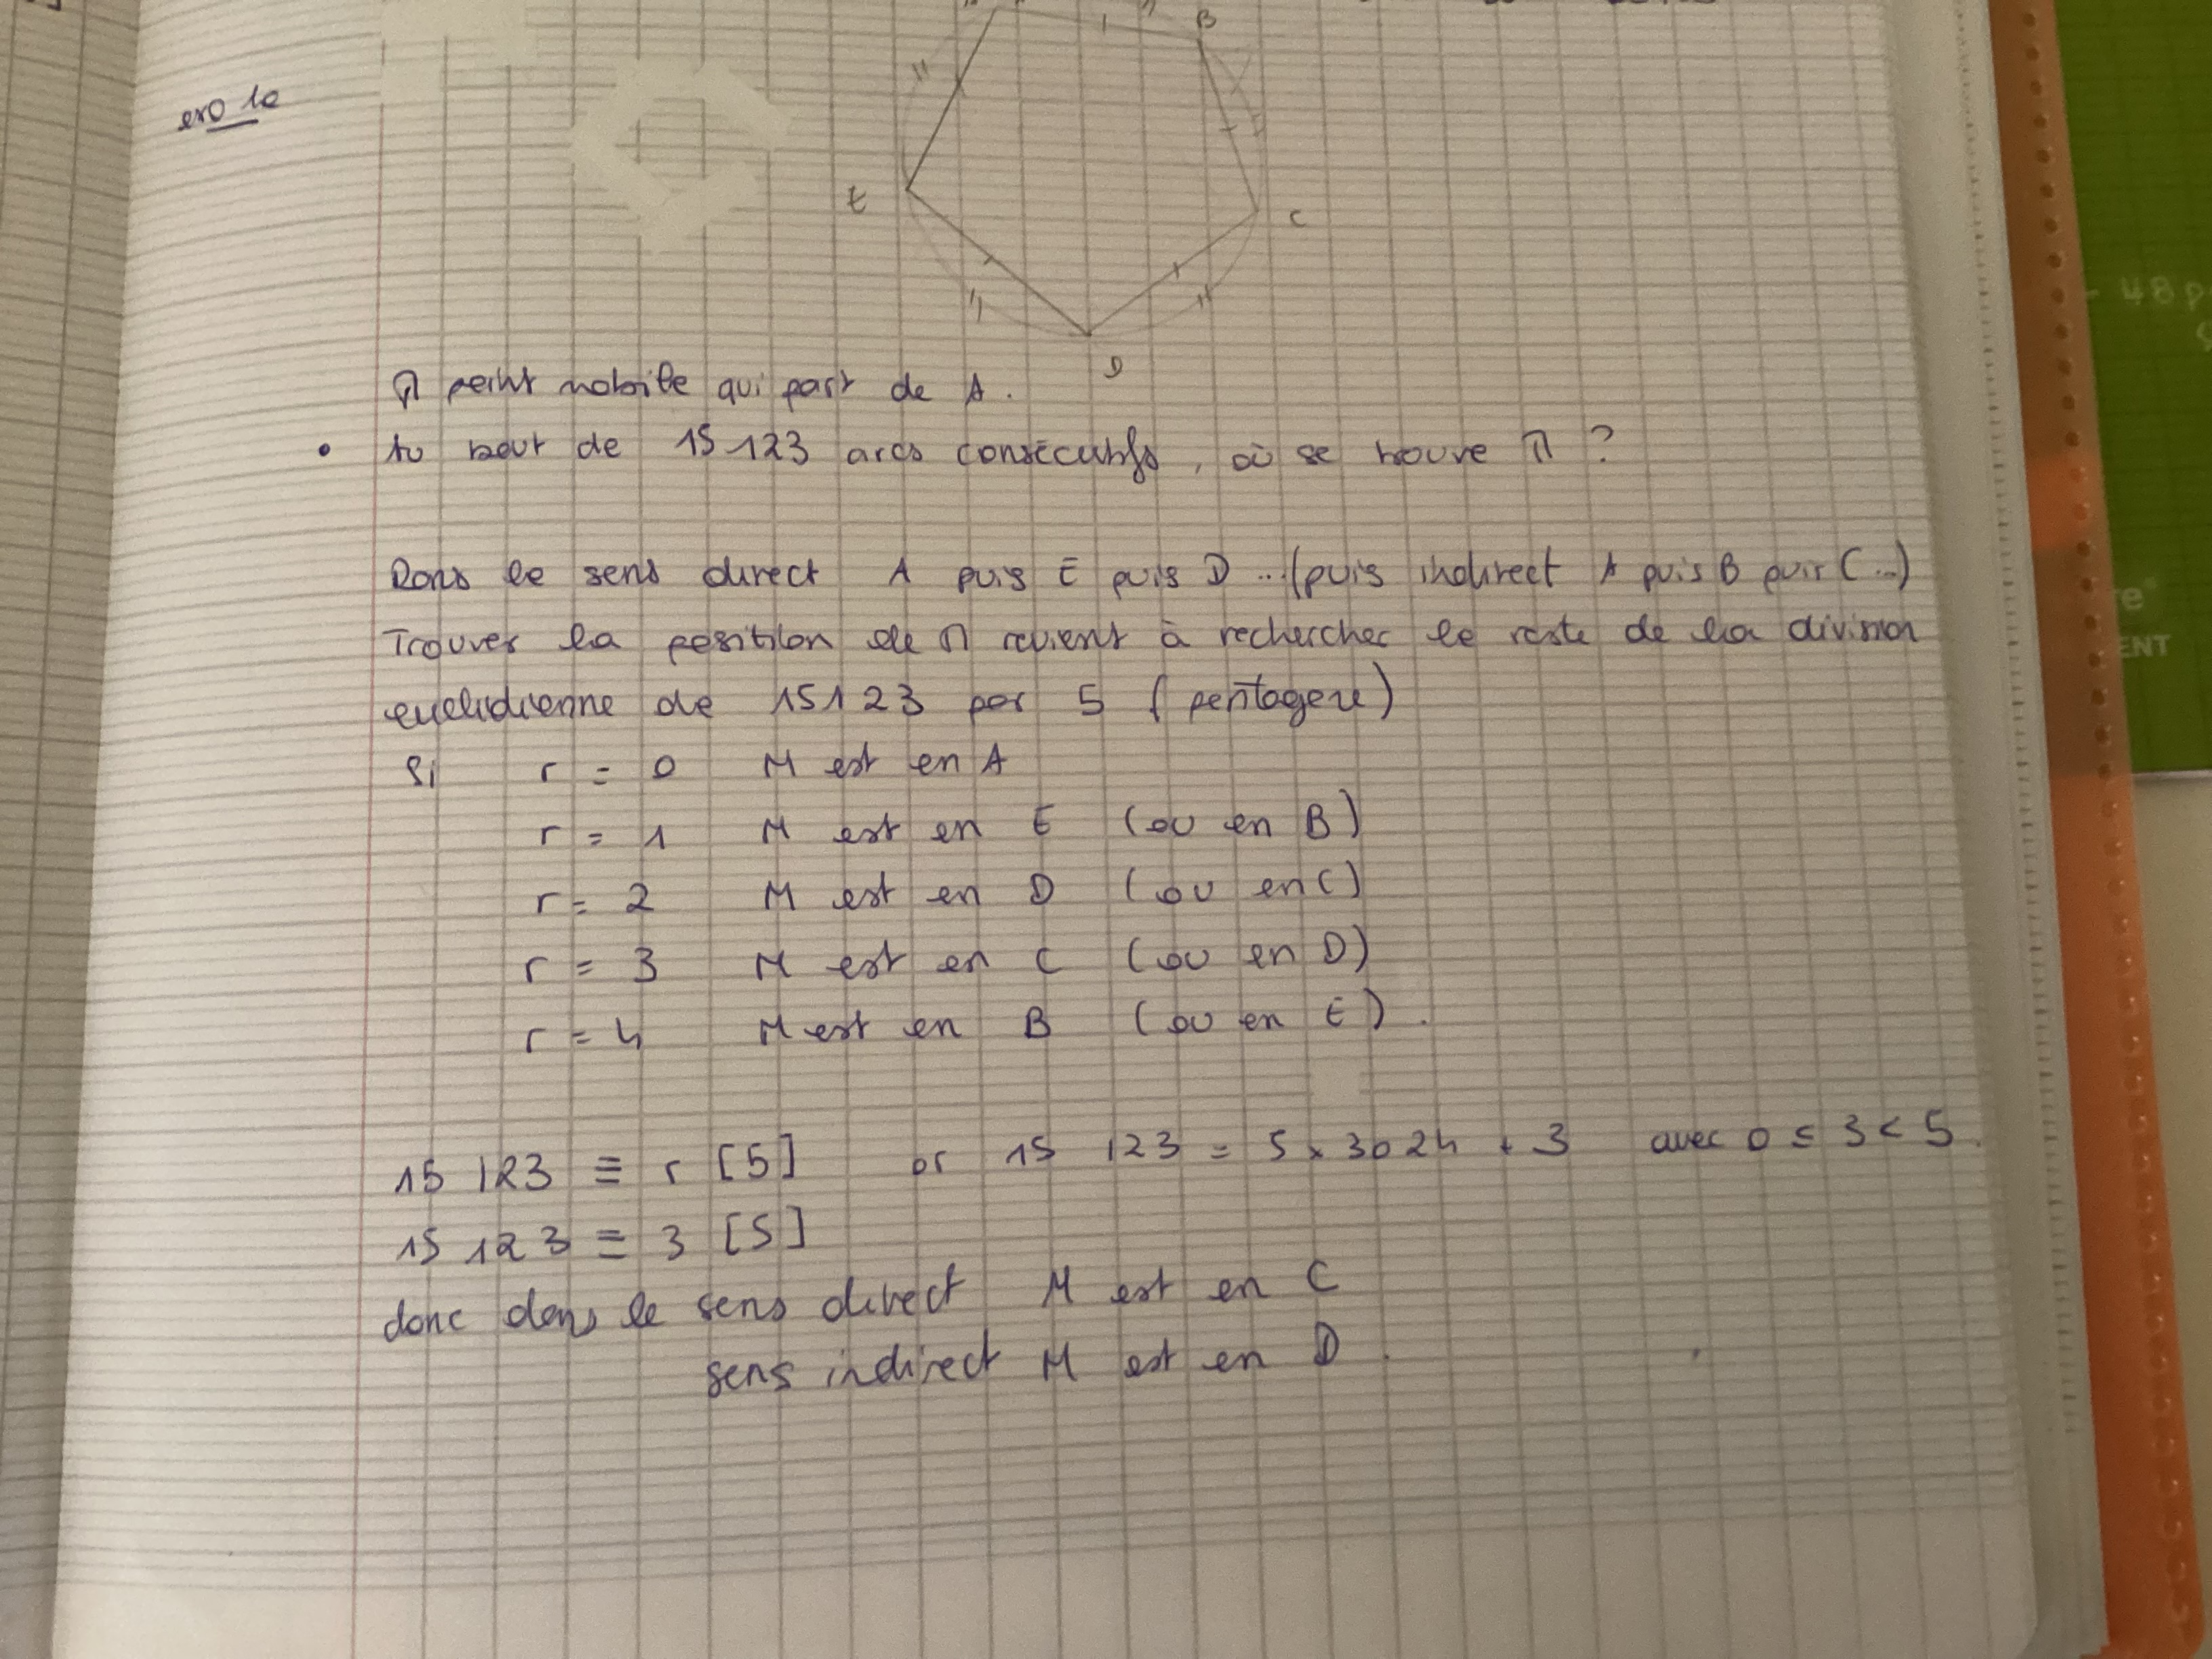 B
exo 10
E
C
D
M point mobile qui part de A.
• Au bout de 15 123 arcs consécutifs, où se trouve M ?
Dans le sens direct A puis E puis D ... (puis indirect A puis B puis C ...)
Trouver la position de M revient à rechercher le reste de la division
euclidienne de 15123 par 5 (pentagone)
Si r = 0 M est en A
r = 1 M est en E (ou en B)
r = 2 M est en D (ou en C)
r = 3 M est en C (ou en D)
r = 4 M est en B (ou en E).
15 123 ≡ r [5] or 15 123 = 5 × 3024 + 3 avec 0 ≤ 3 < 5.
15 123 ≡ 3 [5]
donc dans le sens direct M est en C
sens indirect M est en D.
48 p
ENT